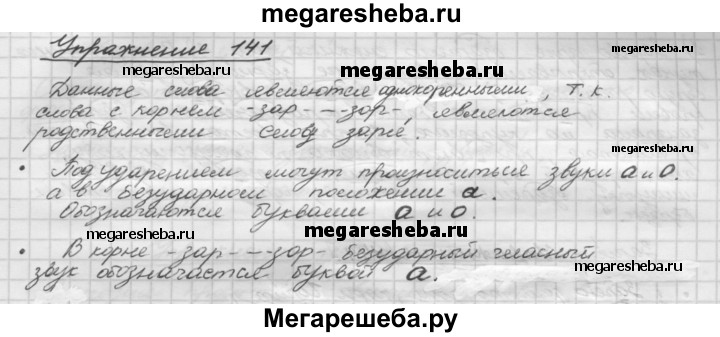 megaresheba.ru
Упражнение 141
megaresheba.ru megaresheba.ru
Данные слова являются однокоренными, т.к.
слова с корнем -зар- – -зор-, являются
родственными слову заря.
megaresheba.ru megaresheba.ru
• Под ударением могут произноситься звуки а и о.
а в безударном положении а.
Обозначаются буквами а и о.
megaresheba.ru
• В корне -зар- – -зор- безударный гласный
звук обозначается буквой а.
megaresheba.ru megaresheba.ru
Мегарешеба.ру